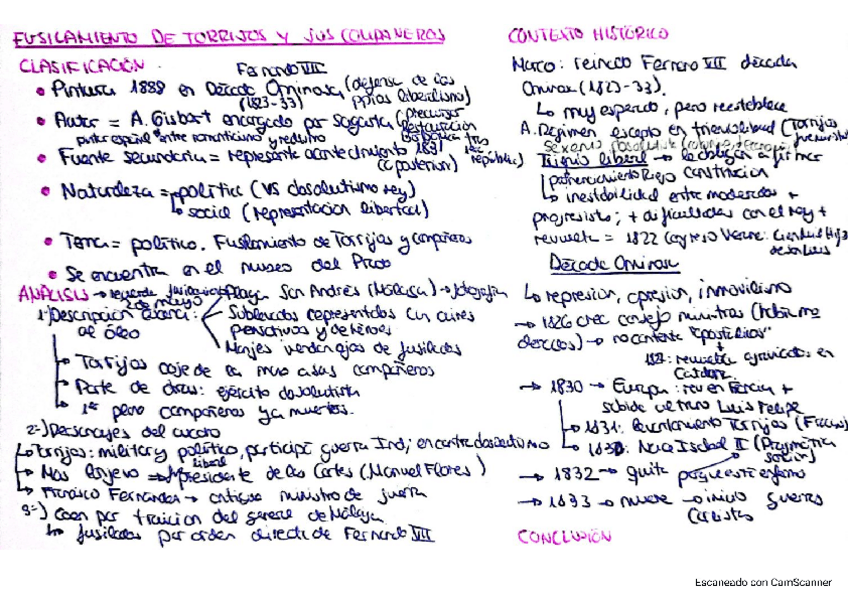 FUSILAMIENTO DE TORRIJOS Y SUS COMPAÑEROS
CLASIFICACIÓN.
Fernando VII
• Pintura 1888 en Década Ominosa (defensa de los
(1823-33) ppios liberalismo)
• Autor = A. Gisbert encargado por Sagasta (precursor
pintor español "entre romanticismo y realismo
• Fuente secundaria = representa acontecimiento 1831
(a posteriori)
• Naturaleza = política (VS absolutismo rey)
↳ social (representación libertad)
• Tema = político. Fusilamiento de Torrijos y compañeros
• Se encuentra en el museo del Prado
ANÁLISIS → recuerda fusilamientos
2 de mayo
Playa San Andrés (Málaga) →
1-) Descripción cuadro:
al óleo
Sublevados representados con aires
pensativos y de héroes
Monjes vendan ojos de fusilados
→ Torrijos coge de la mano a sus compañeros
→ Parte de atrás: ejército absolutista
→ 1er plano compañeros ya muertos.
2-) Personajes del cuadro
↳ Torrijos: militar y político, participó guerra Ind; en contra absolutismo
→ Más longevo → presidente de las Cortes (Manuel Flores)
liberal
↳ Francisco Fernández → antiguo ministro de guerra
3-) Caen por traición del general de Málaga
↳ fusilados por orden directa de Fernando VII
CONTEXTO HISTÓRICO
Marco: reinado Fernando VII década
Ominosa (1823-33).
↳ muy esperado, pero reestablece
A. Régimen excepto en trienio liberal (Torrijos
Trienio liberal → le obligan a firmar
pronunciamiento Riego Constitución
↳ inestabilidad entre moderados +
progresistas; + dificultades con el rey +
revueltas = 1822 Congreso Verona: Cien mil Hijos
de San Luis
Década Ominosa
↳ represión, opresión, inmovilismo
→ 1826 crea consejo ministros
→ no contenta "apostólicos"
+
1827: revuelta agraviados en
Cataluña
→ 1830 → Europa: rev en Francia +
sube al trono Luis Felipe
→ 1831: levantamiento Torrijos (Fracaso)
↳ 1830: Nace Isabel II (Pragmática
sanción)
→ 1832 → quita porque está enfermo
→ 1833 → muere → inicio guerras
Carlistas
CONCLUSIÓN
Escaneado con CamScanner